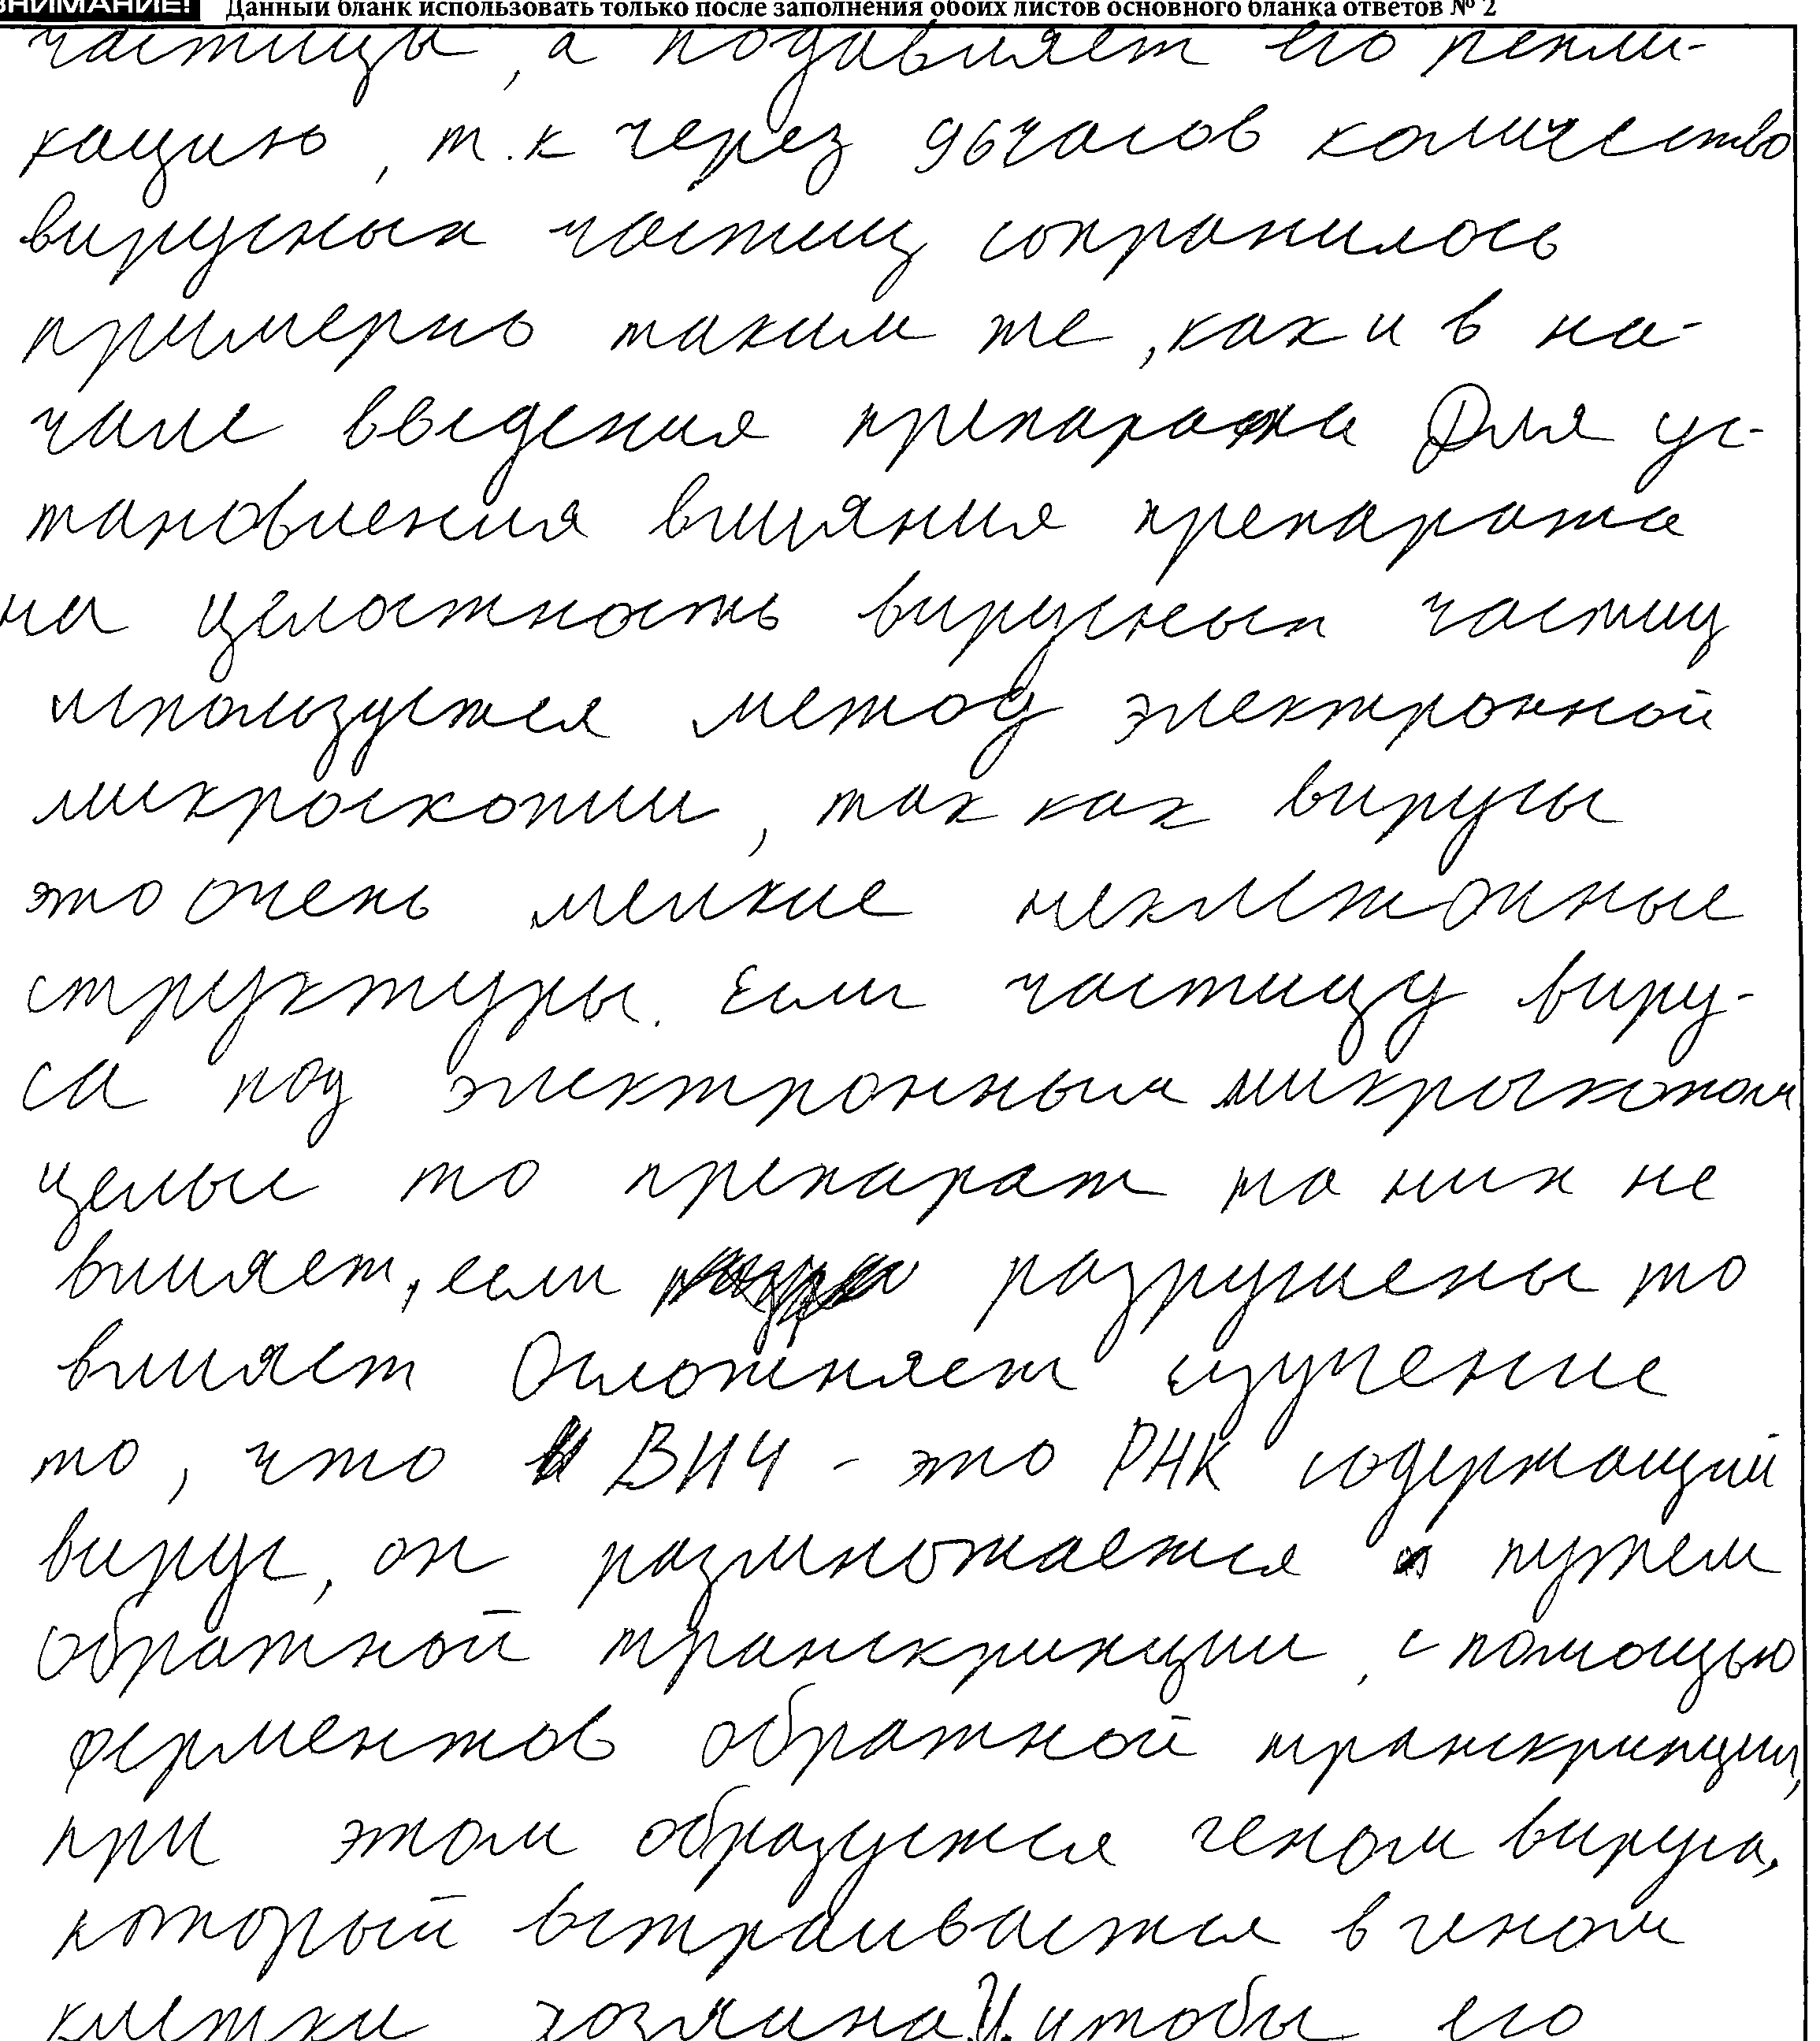 ВНИМАНИЕ! Данный бланк использовать только после заполнения обоих листов основного бланка ответов № 2
частицы, а подавляет его репли-
кацию, т.к через 96 часов количество
вирусных частиц сохранилось
примерно таким же, как и в на-
чале введения препарата Для ус-
тановления влияния препарата
на целостность вирусных частиц
используется метод электронной
микроскопии, так как вирусы
это очень мелкие неклеточные
структуры. Если частицу виру-
са под электронным микроскопом
целые то препарат на них не
влияет, если разрушены то
влияет Осложняет изучение
то, что ВИЧ - это РНК содержащий
вирус, он размножается путем
обратной транскрипции, с помощью
ферментов обратной транскрипции,
при этом образуется геном вируса,
который встраивается в геном
клетки хозяина И чтобы его